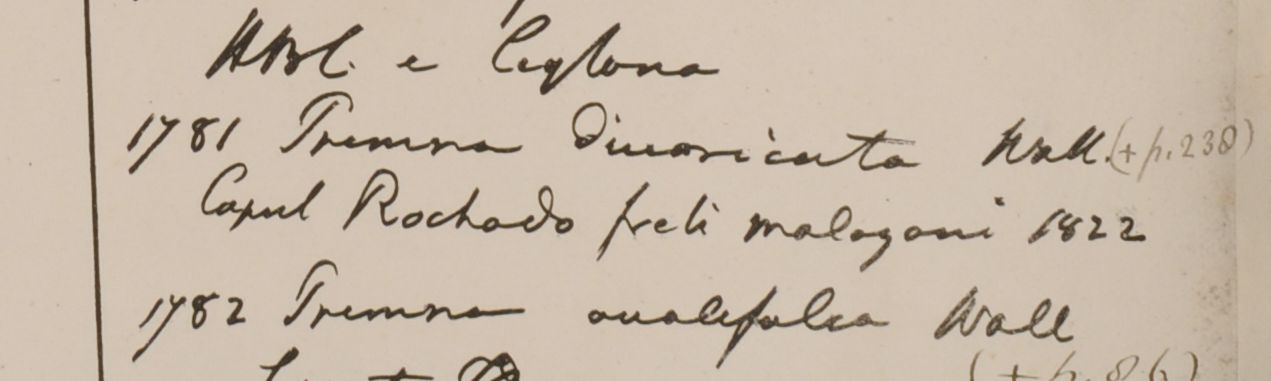 HBC. e Ceylona
1781 Premna divaricata Wall. (+ p. 238)
Caput Rochado freti malagani 1822
1782 Premna ovalifolia Wall
(+ p. 86)